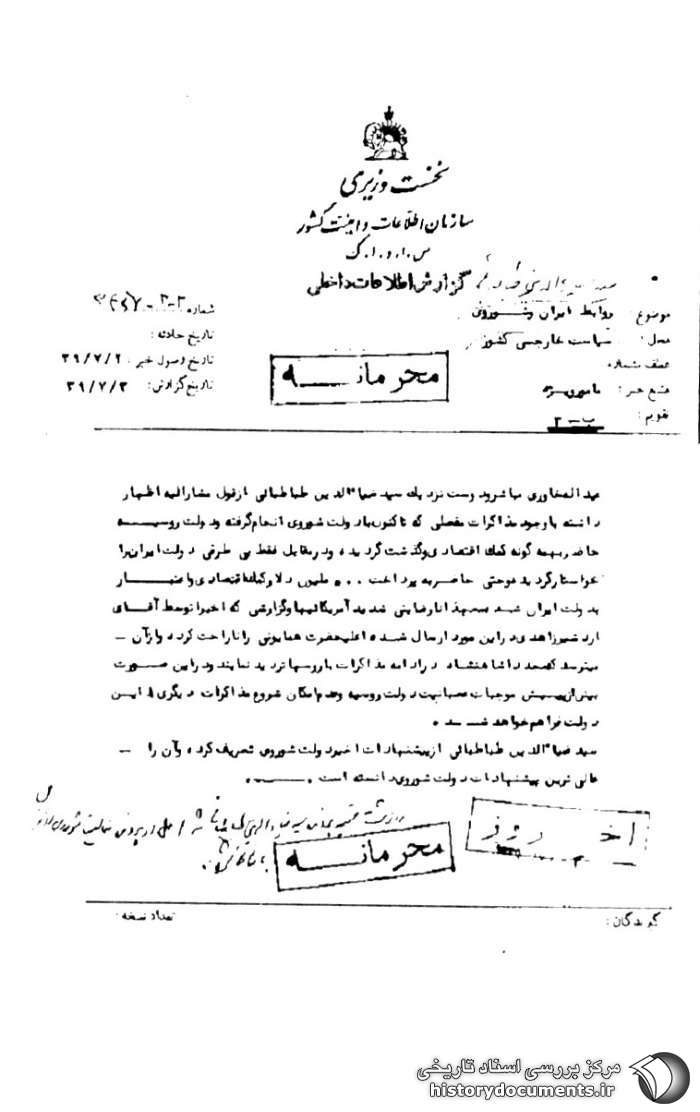 نخست وزیری
سازمان اطلاعات و امنیت کشور
س.ا.و.ا.ک
گزارش اطلاعات داخلی
موضوع: روابط ایران و شوروی
محل: سیاست خارجی کشور
عطف بشماره
منبع خبر: مامور ویژه
تقویم: ب - ۳
شماره
تاریخ حادثه:
تاریخ وصول خبر: ۳۹/۷/۲
تاریخ گزارش: ۳۹/۷/۳
محرمانه
عبداله خاوری مباشر و دوست نزدیک سید ضیاءالدین طباطبائی از قول مشارالیه اظهار
داشته با وجود مذاکرات مفصلی که تاکنون با دولت شوروی انجام گرفته و دولت روسیه
حاضر بهمه گونه کمک اقتصادی و گذشت گردیده و در مقابل فقط بی طرفی دولت ایران را
خواستار گردیده و حتی حاضر به پرداخت ۰۰۰ ملیون دلار کمک اقتصادی و اعتبار
بدولت ایران شده معهذا نارضایتی شدید آمریکائیها و گزارشی که اخیرا توسط آقای
اردشیر زاهدی در این مورد ارسال شده اعلیحضرت همایونی را ناراحت کرده و از آن
میترسد که مجددا شاهنشاه در ادامه مذاکرات با روسها تردید نمایند و در این صورت
بیش از پیش موجبات عصبانیت دولت روسیه و عدم امکان شروع مذاکرات دیگری با این
دولت فراهم خواهد شد.
سید ضیاءالدین طباطبائی از پیشنهادات اخیر دولت شوروی تعریف کرده و آن را
عالی ترین پیشنهادات دولت شوروی دانسته است.
محرمانه
گیرندگان:
تعداد نسخه:
مرکز بررسی اسناد تاریخی
historydocuments.ir